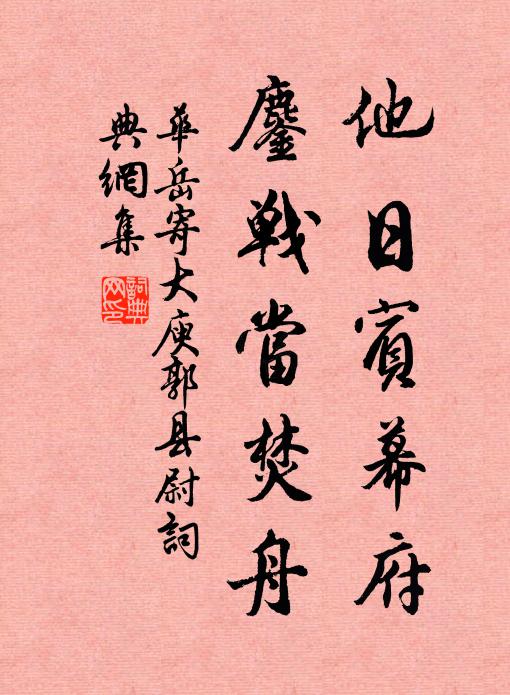 他日賓幕府
鏖戰當焚舟
華岳寄大庾郭县尉詞
典網集
詞典网印